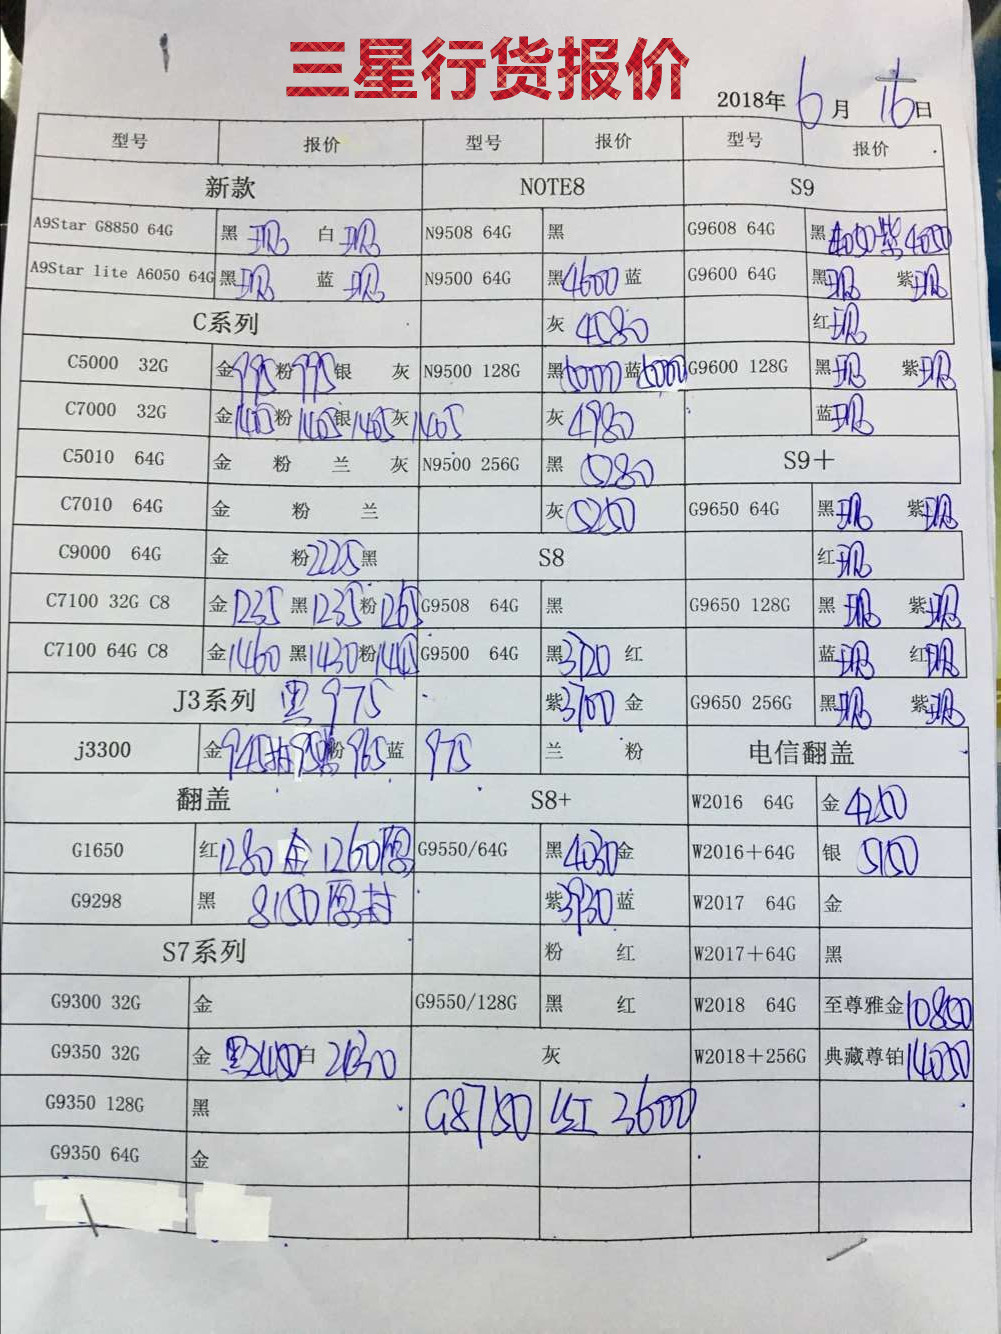 三星行货报价
2018年 6月 16日
型号 报价 型号 报价 型号 报价
新款 NOTE8 S9
A9Star G8850 64G 黑 现 白 现 N9508 64G 黑 G9608 64G 黑 4050 紫 4050
A9Star lite A6050 64G 黑 现 蓝 现 N9500 64G 黑 4600 蓝 G9600 64G 黑 现 紫 现
C系列 灰 4580 红 现
C5000 32G 金 995 粉 995 银 灰 N9500 128G 黑 5000 蓝 5000 G9600 128G 黑 现 紫 现
C7000 32G 金 1405 粉 1405 银 1405 灰 1405 灰 4980 蓝 现
C5010 64G 金 粉 兰 灰 N9500 256G 黑 5280 S9+
C7010 64G 金 粉 兰 灰 5250 G9650 64G 黑 现 紫 现
C9000 64G 金 粉 2225 黑 S8 红 现
C7100 32G C8 金 1235 黑 1235 粉 1265 G9508 64G 黑 G9650 128G 黑 现 紫 现
C7100 64G C8 金 1460 黑 1430 粉 G9500 64G 黑 红 蓝 现 红 现
J3系列 黑 975 紫 3700 金 G9650 256G 黑 现 紫 现
j3300 金 945 粉 965 蓝 975 兰 粉 电信翻盖
翻盖 S8+ W2016 64G 金 4250
G1650 红 1280 金 1260 原 G9550/64G 黑 4030 金 W2016+64G 银 5150
G9298 黑 8150 原封 紫 3930 蓝 W2017 64G 金
S7系列 粉 红 W2017+64G 黑
G9300 32G 金 G9550/128G 黑 红 W2018 64G 至尊雅金
G9350 32G 金 黑 白 灰 W2018+256G 典藏尊铂
G9350 128G 黑 G8750 红 3600
G9350 64G 金